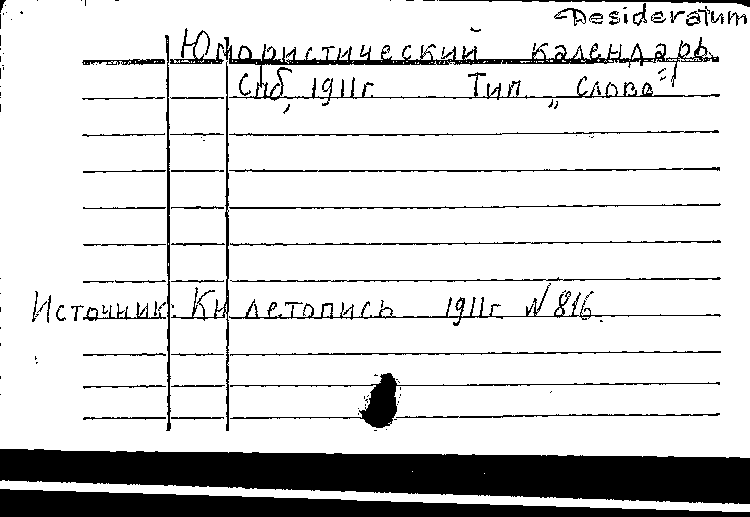 Desideratum
Юмористический календарь
Спб, 1911г. Тип. „Слово"
Источник: Кн летопись 1911г. N 816.